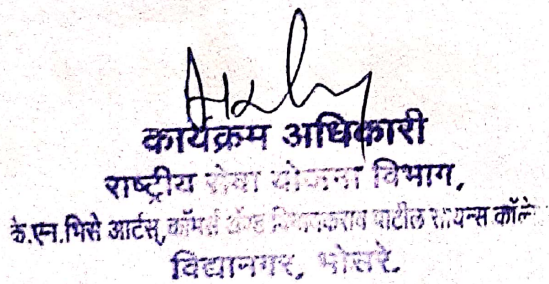 कार्यक्रम अधिकारी
राष्ट्रीय सेवा योजना विभाग,
के.एन.भिसे आर्टस्, कॉमर्स ॲण्ड विनायकराव पाटील सायन्स कॉले
विद्यानगर, भोसरे.